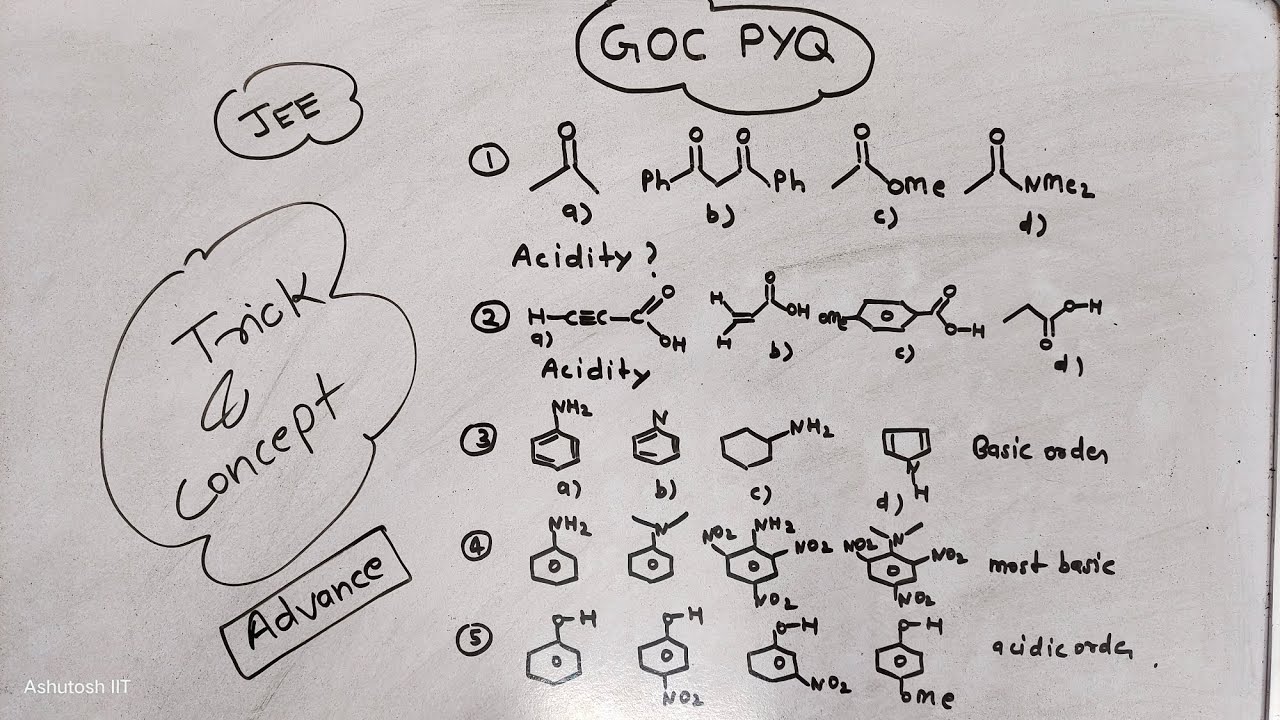 GOC PYQ
JEE
Trick
&
Concept
Advance
① O O O O O
Ph Ph OMe NMe2
a) b) c) d)
Acidity ?
② H-C≡C-C O OH H H O OH OMe O O-H O-H O
a) b) c) d)
Acidity
③ NH2 N NH2 N H Basic order
a) b) c) d)
④ NH2 N NO2 NH2 NO2 NO2 NO2 N NO2 NO2 most basic
⑤ O-H O-H NO2 O-H NO2 O-H OMe acidic order
Ashutosh IIT